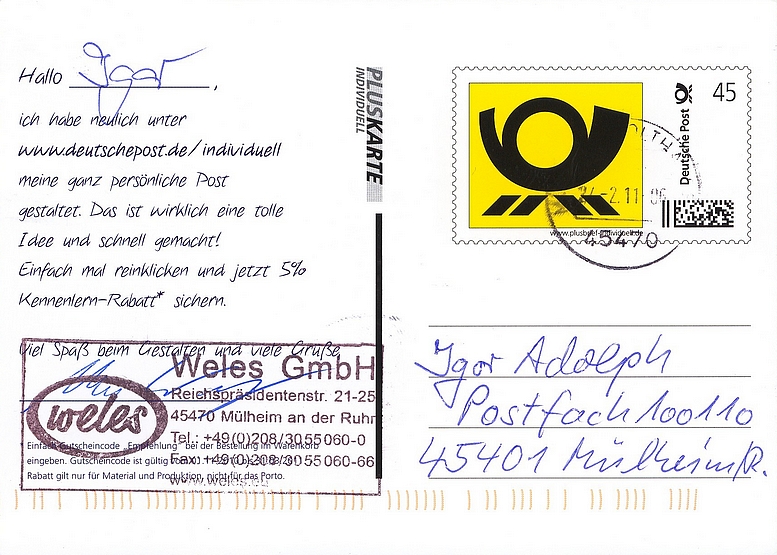 Hallo Igor,
ich habe neulich unter
www.deutschepost.de/individuell
meine ganz persönliche Post
gestaltet. Das ist wirklich eine tolle
Idee und schnell gemacht!
Einfach mal reinklicken und jetzt 5%
Kennenlern-Rabatt* sichern.
Viel Spaß beim Gestalten und viele Grüße
weles
Weles GmbH
Reichspräsidentenstr. 21-25
45470 Mülheim an der Ruhr
Tel.: +49(0)208/3055060-0
Fax: +49(0)208/3055060-66
* Einfach Gutscheincode „Empfehlung“ bei der Bestellung im Warenkorb
eingeben. Gutscheincode ist gültig
Rabatt gilt nur für Material und Produktion, nicht für das Porto.
PLUSKARTE
INDIVIDUELL
Deutsche Post
45
www.plusbrief-individuell.de
45470
Igor Adolph
Postfach 100110
45401 Mülheim/R.